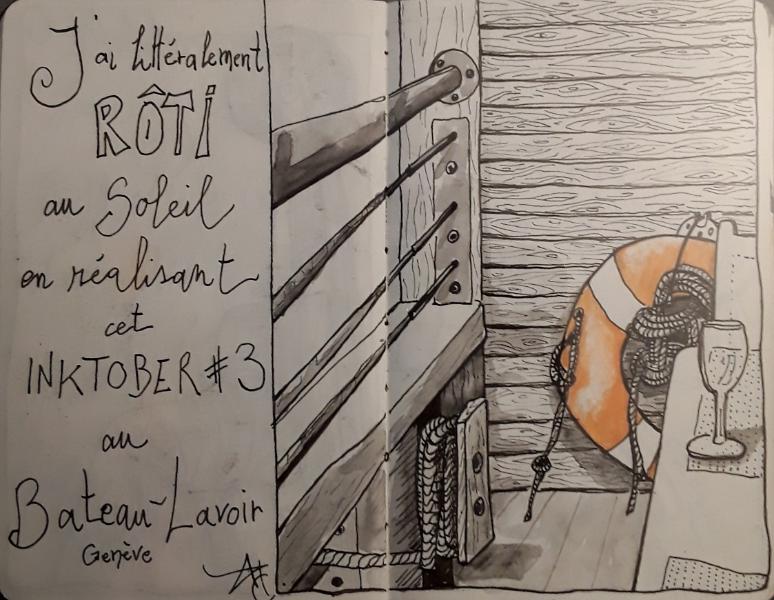 J'ai littéralement
RÔTI
au Soleil
en réalisant
cet
INKTOBER #3
au
Bateau-Lavoir
Genève